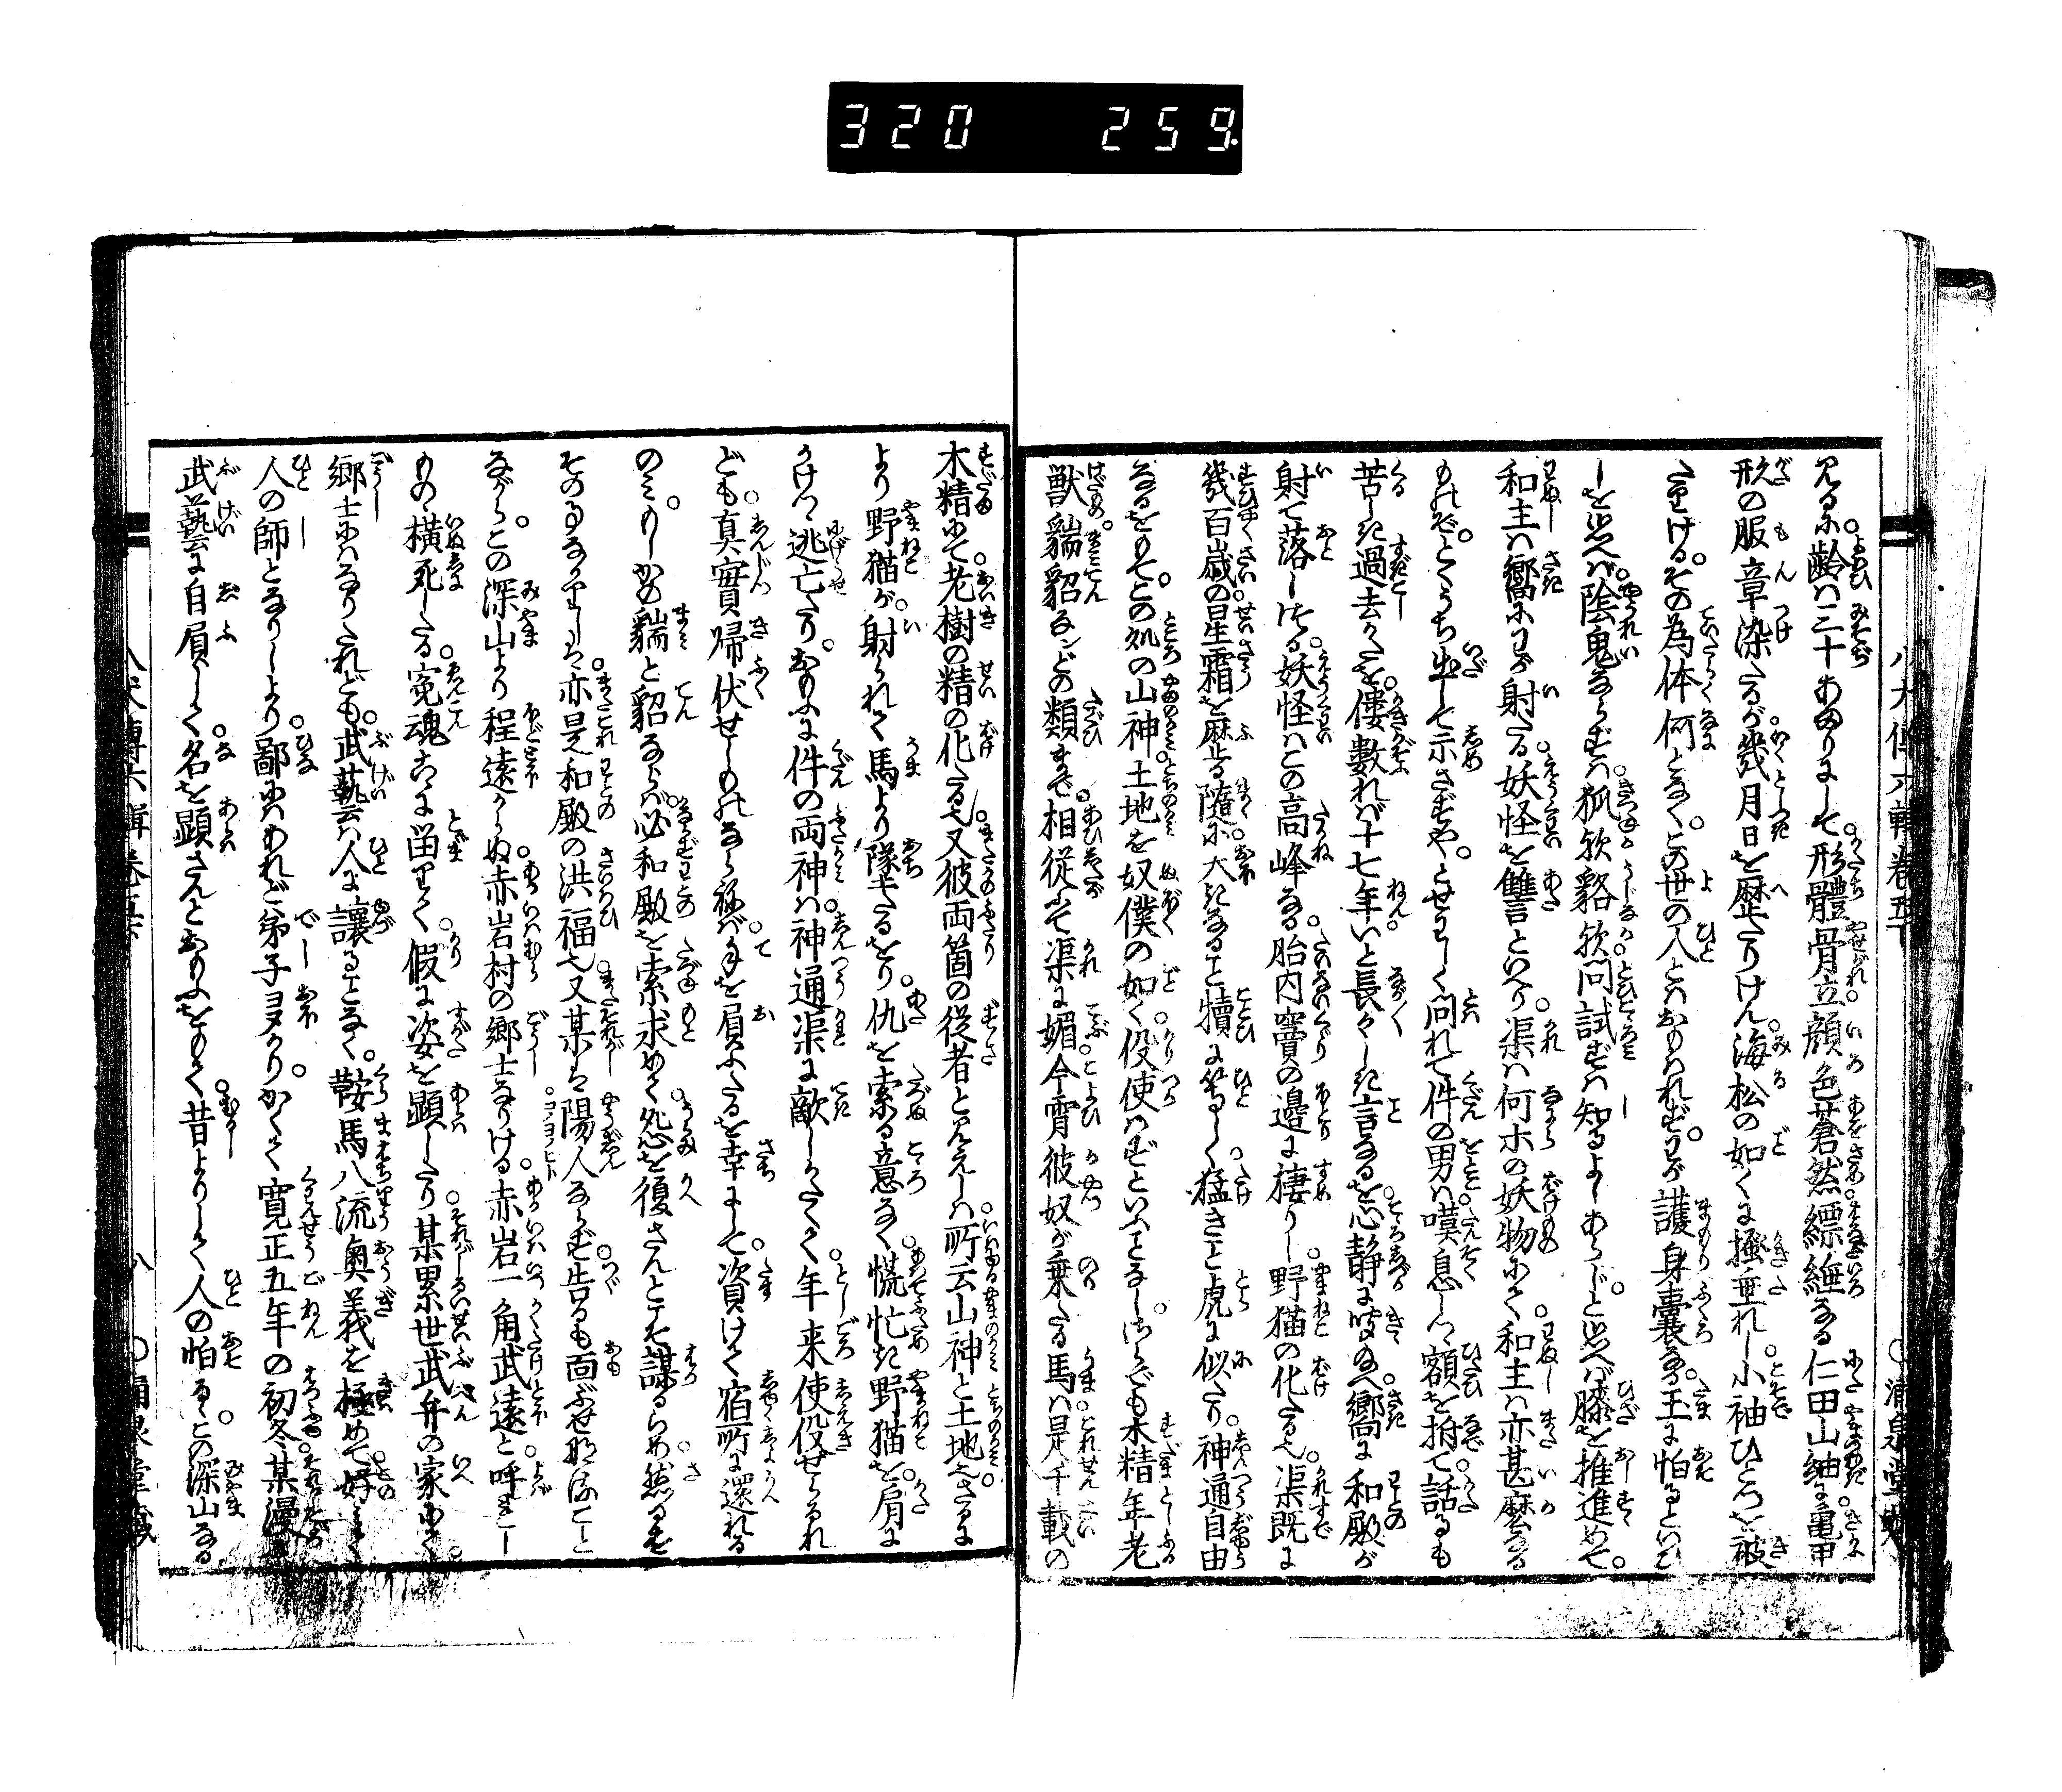 320 259
見るに齢は三十あまりにして形體骨立顔色蒼然縹緻なる仁田山紬に亀甲
形の服章染たるが幾月日を歴たりけん海松の如くに掻垂れし小袖ひとつを被
たりける。その為体何となく。この世の人とはおもはれず。わが護身嚢なる玉に怕るといひ
しを思へば陰鬼ならずは狐欤貉欤問試ずは知るよしあらじ。と思へば膝を推進めて。
和主は嚮にわが射たる妖怪を讐といへり。渠は何ホの妖物にて。和主は亦甚麼なる
ものぞ。とくうち出して示さずや。とせわしく問れて件の男は嘆息しつゝ額を拊て話るも
苦しき過去かたを。僂數れば十七年いと長々しき言なるを心静に咬ひね。嚮に和殿が
射て落しつる。妖怪はこの高峰なる。胎内竇の邊に棲りし野猫の化たる也。渠既に
幾百歳の星霜を歴る隨に大きなること犢に等しく。猛きこと虎に似たり。神通自由
なるをもて。この処の山神土地を奴僕の如く役使はずといふことなし。加以も木精年老
獣貒貂なンどの類まで。相従ふて渠に媚。今宵彼奴が乗たる馬は是千載の
木精にて。老樹の精の化たる也。又彼両箇の従者と見えしは。所云山神と土地也。さるに
より野猫が射られて馬より墜たるをり。仇を索る意なく慌忙き野猫を。肩に
かけつゝ逃亡たり。おもふに件の両神は。神通渠に敵しかたくて。年来使役せらるれ
ども。真實帰伏せしものならねば。手を負ふたるを幸にして。資けて宿所に還れる
のみ。もしかの貒と貂ならば必和殿を索求めて。怨を復さんとこそ謀るらめ。然るを
その事なかりしは。亦是和殿の洪福也。又某は陽人ならず。告るも面ぶせなること
ながら。この深山より程遠からぬ赤岩村の郷士なりける。赤岩一角武遠と呼れし
もの。横死したる。寃魂こゝに畄りて。假に姿を顕したり。某累世武弁の家にて。
郷士にはなりたれども。武藝は人に讓ることなく。鞍馬八流奥義を極めて好みて
人の師となりしより。鄙にはあれど弟子ヨタかり。かくて寛正五年の初冬某漫
武藝に自屓して。名を顕さんとおもふをもて。昔よりして人の怕るゝ。この深山なる
八犬傳六輯巻五下